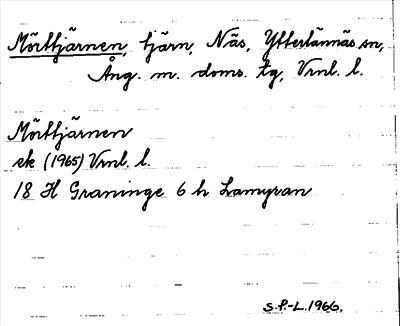 Mörttjärnen, tjärn, Näs, Ytterlännäs sn,
Ång. m. doms. tg, Vrnl. l.
Mörttjärnen
ek (1965) Vrnl. l.
18 H Graninge 6 h Lamyran
S.P.-L. 1966.